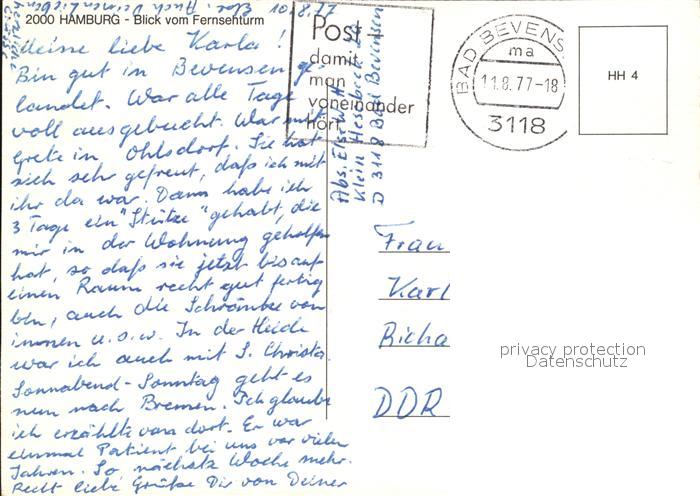 2000 HAMBURG - Blick vom Fernsehturm
10.8.77
Meine liebe Karla!
Bin gut in Bevensen ge-
landet. War alle Tage
voll ausgebucht. War mit
Grete in Ohlsdorf. Sie hat
sich sehr gefreut, daß ich mit
ihr da war. Dann habe ich
3 Tage ein "Stütze" gehabt, die
mir in der Wohnung geholfen
hat, so daß sie jetzt bis auf
einen Raum recht gut fertig
bin, auch die Schränke von
innen u.s.w. In der Heide
war ich auch mit S. Christa.
Sonnabend-Sonntag geht es
nun nach Bremen. Ich glaube
ich erzählte von dort. Er war
einmal Patient bei uns vor vielen
Jahren. So nächste Woche mehr.
Recht liebe Grüße Dir von Deiner
Post -
damit
man
voneinander
hört
Abs. Else
Klein Hesebeck
D 3118 Bad Bevensen
BAD BEVENSEN
ma
11.8.77-18
3118
HH 4
Frau
Karl
Richa
DDR
privacy protection
Datenschutz